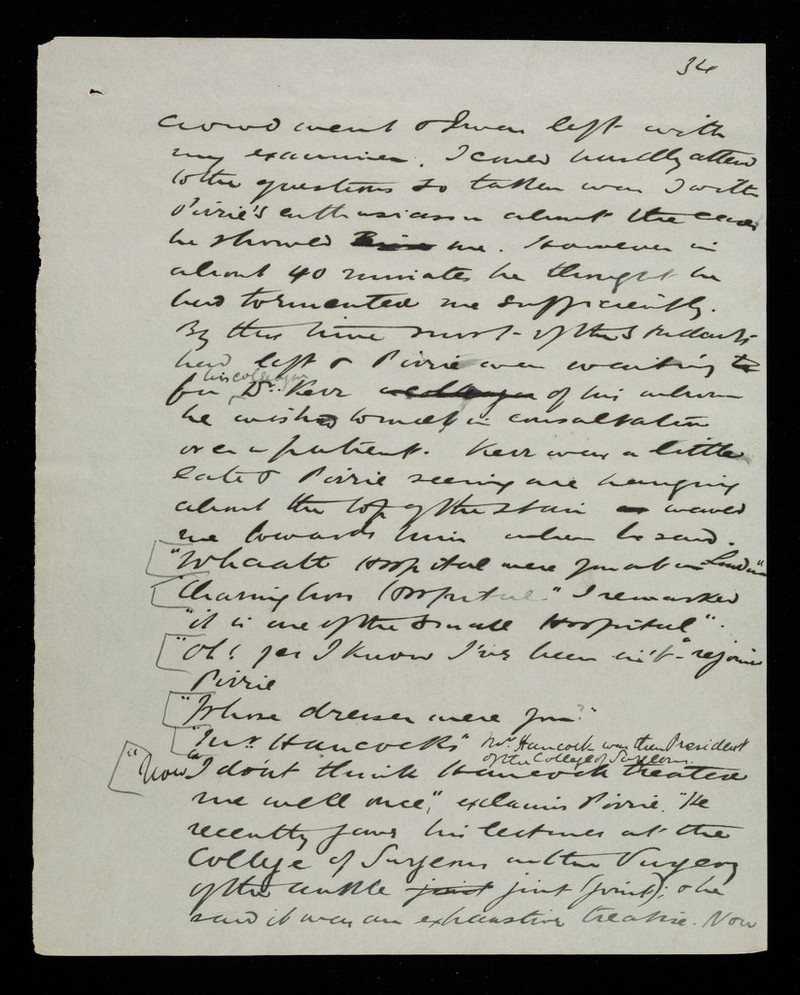 34
crowd went & I was left with
my examiner. I could hardly attend
to the questions so taken was I with
Pirrie's enthusiasm about the cases
he showed me. However in
about 40 minutes he thought he
had tormented me sufficiently.
By this time most of the students
had left & Pirrie was waiting to
his colleague
for Dr. Kerr a colleague of his whom
he wished to meet in consultation
over a patient. Kerr was a little
late & Pirrie seeing me hanging
about the top of the stair waved
me towards him when he said.
"Whaatt Hospital were you at in London"
"Charing Cross Hospital." I remarked
"it is one of the small Hospital".
"Oh! yes I know I've been in't" rejoins
Pirrie
"Whose dresser were you?"
"Mr. Hancock's" Mr. Hancock was then President
of the College of Surgeons.
"Now I don't think Hancock treated
me well once," exclaims Pirrie. "He
recently gave his lectures at the
College of Surgeons on the Surgery
of the ankle joint jint (joint); & he
said it was an exhaustive treatise. Now